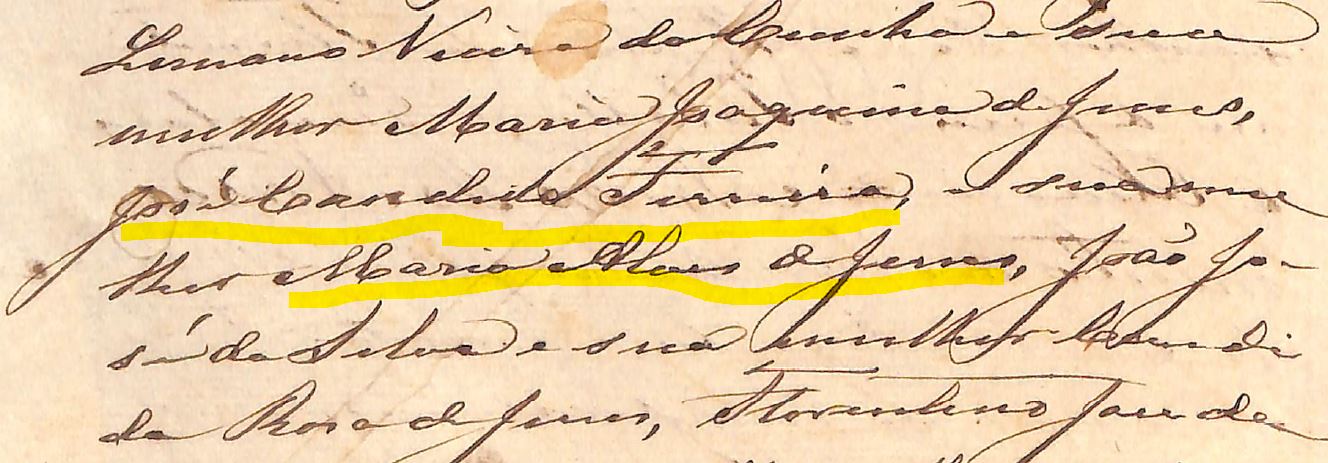 Vieira da Cunha e sua
mulher Maria Joaquina de Jesus,
José Candido Ferreira, e sua mu
lher Maria Alves de Jesus, João Jo-
sé da Silva e sua mulher Candi
da Rosa de Jesus, Florentino de